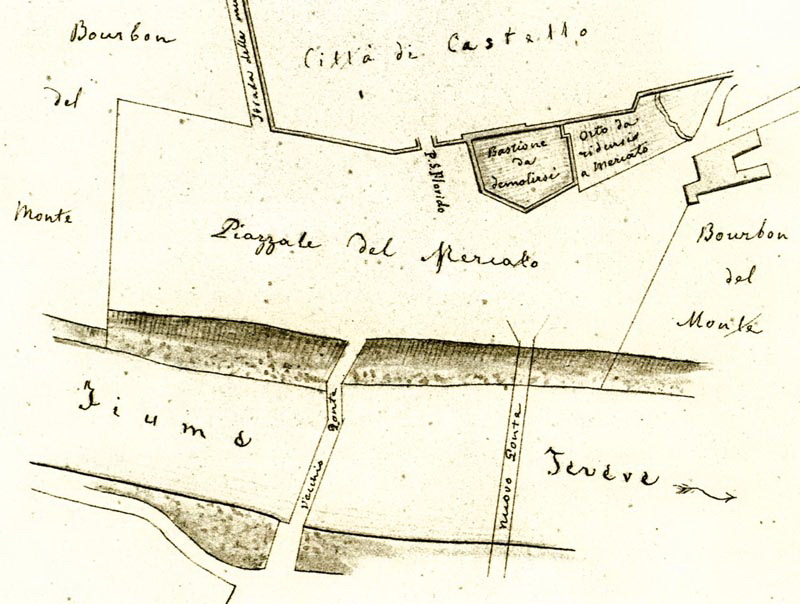 Bourbon
del
Monte
Strada delle mu
Città di Castello
P. S. Florido
Bastione
da
demolirsi
Orto da
ridursi
a Mercato
Piazzale del Mercato
Bourbon
del
Monte
Fiume
Tevere
Vecchio Ponte
Nuovo Ponte